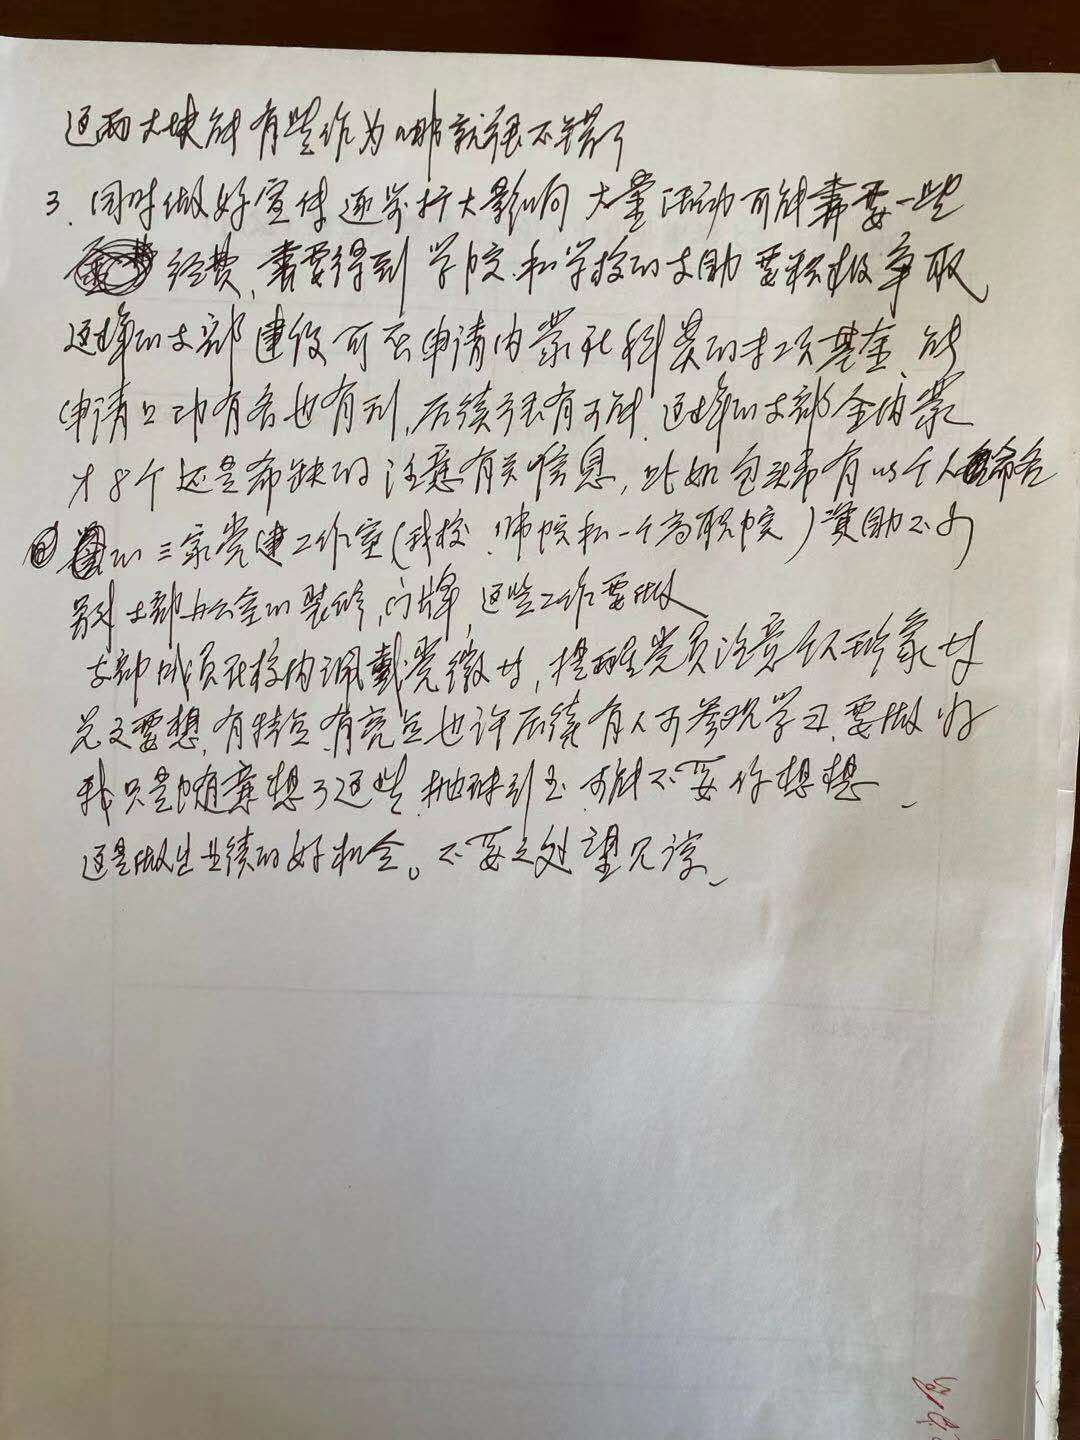 这两大块能有些作为哪就很不错了
3. 同时做好宣传逐步扩大影响 大量活动可能需要一些
经费,需要得到学院和学校的支助 要积极争取
这样的支部建设可否申请内蒙社科类的专项基金、能
申请已功有否也有利,后续还有可能.这样的支部全内蒙
才8个还是希缺的 注意有关信息,比如包头市有以个人命名
的三家党建工作室(我校、师院和一个高职院)资助不少
另外支部办公室的装修,门牌,这些工作要做
支部成员在校内佩戴党徽等,提醒党员注意个人形象等
总之要想,有特点,有亮点也许后续有人可参观学习,要做好
我只是随意想了这些 抛砖引玉 可能不妥你想想、
这是做出业绩的好机会。不妥之处望见谅、